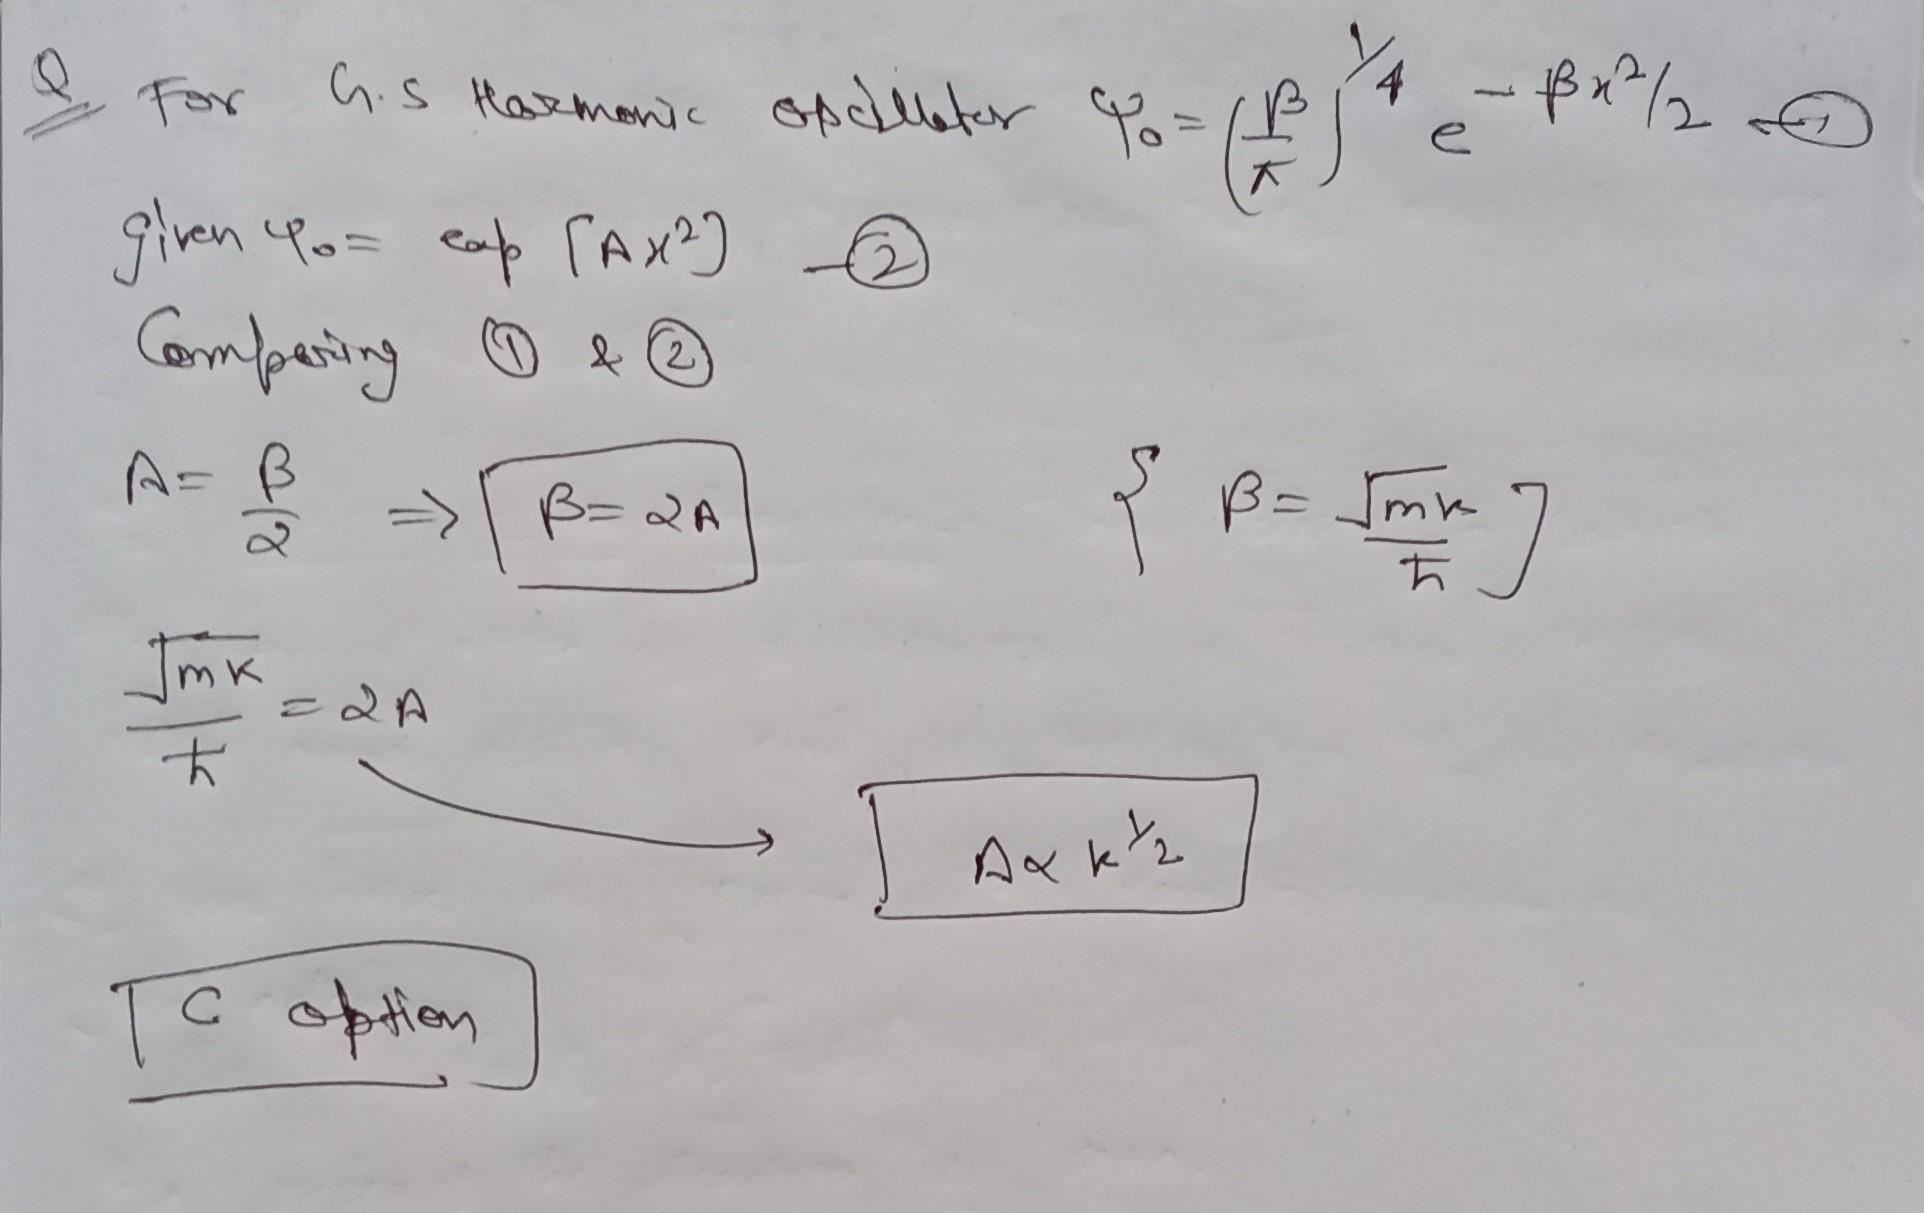 Q For G.S Harmonic oscillator φ₀ = (β/π)^1/4 e^-βx²/2 - ①
given φ₀ = exp [Ax²] - ②
Comparing ① & ②
A = β/2 ⇒ β = 2A { β = √mk/ħ ]
√mk/ħ = 2A
A ∝ k^1/2
C option